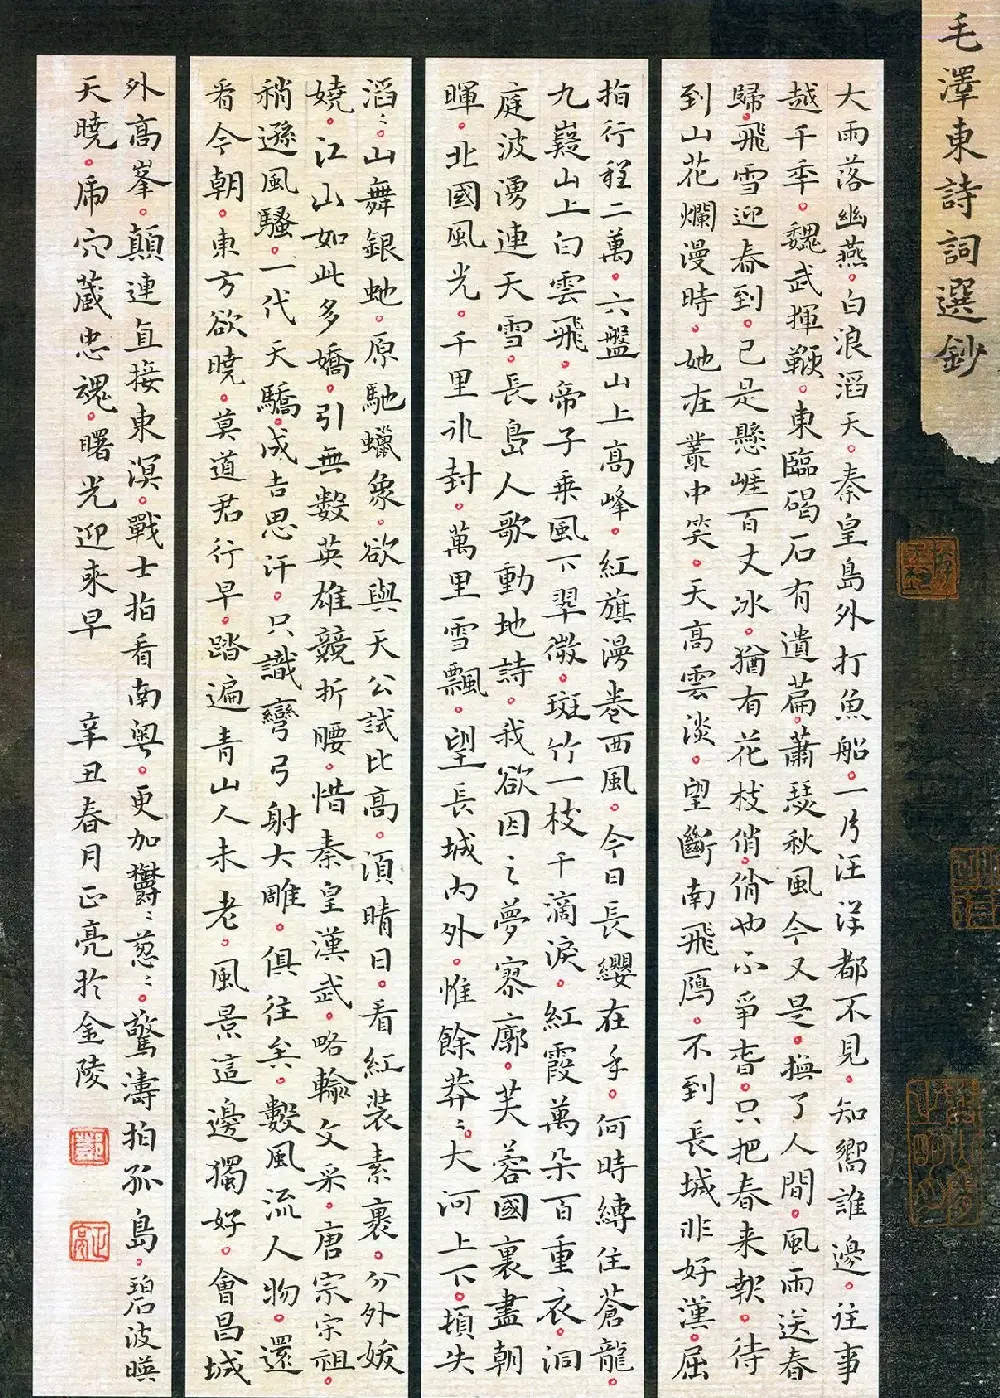 毛澤東詩詞選鈔
大雨落幽燕。白浪滔天。秦皇島外打魚船。一片汪洋都不見。知嚮誰邊。往事
越千年。魏武揮鞭。東臨碣石有遺篇。蕭瑟秋風今又是。換了人間。風雨送春
歸。飛雪迎春到。已是懸崖百丈冰。猶有花枝俏。俏也不爭春。只把春来報。待
到山花爛漫時。她在叢中笑。天高雲淡。望斷南飛鴈。不到長城非好漢。屈
指行程二萬。六盤山上高峰。紅旗漫卷西風。今日長纓在手。何時縛住蒼龍
九嶷山上白雲飛。帝子乘風下翠微。斑竹一枝千滴淚。紅霞萬朵百重衣。洞
庭波湧連天雪。長島人歌動地詩。我欲因之夢寥廓。芙蓉國裏盡朝
暉。北國風光。千里氷封。萬里雪飄。望長城內外。惟餘莽〻。大河上下。頓失
滔〻。山舞銀虵。原馳蠟象。欲與天公試比高。須晴日。看紅裝素裹。分外妖
嬈。江山如此多嬌。引無數英雄競折腰。惜秦皇漢武。略輸文采。唐宗宋祖。
稍遜風騷。一代天驕。成吉思汗。只識彎弓射大雕。俱往矣。數風流人物。還
看今朝。東方欲曉。莫道君行早。踏遍青山人未老。風景這邊獨好。會昌城
外高峯。顛連直接東溟。戰士指看南粵。更加鬱〻蔥〻。驚濤拍孤島。碧波映
天曉。虎穴藏忠魂。曙光迎來早 辛丑春月正亮於金陵
正亮